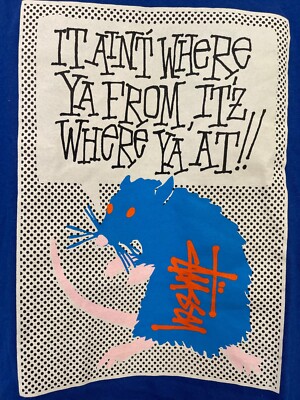 IT AIN'T WHERE
YA FROM, IT'Z
WHERE YA' AT!!
STÜSSY